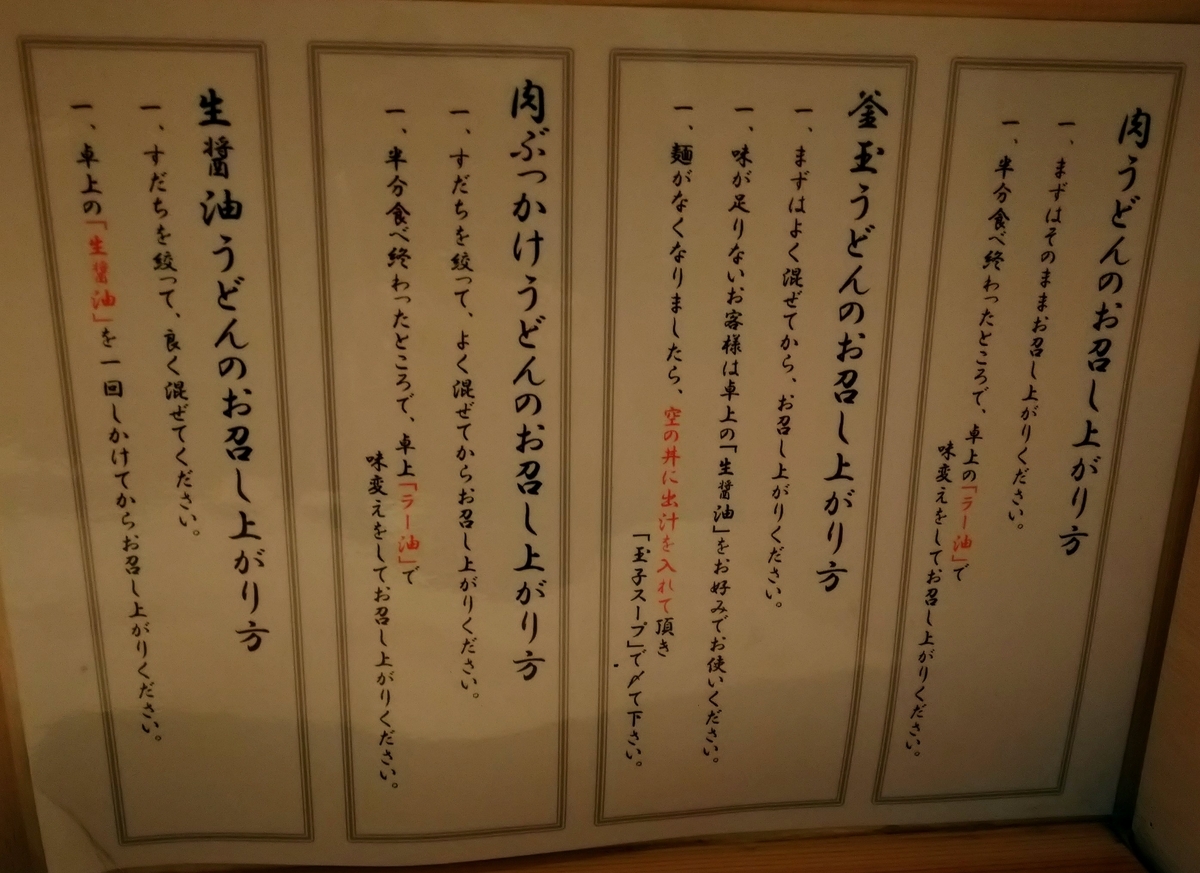 肉うどんのお召し上がり方
一、まずはそのままお召し上がりください。
一、半分食べ終わったところで、卓上の「ラー油」で
味変えをしてお召し上がりください。
釜玉うどんのお召し上がり方
一、まずはよく混ぜてから、お召し上がりください。
一、味が足りないお客様は卓上の「生醤油」をお好みでお使いください。
一、麺がなくなりましたら、空の丼に出汁を入れて頂き
「玉子スープ」で〆て下さい。
肉ぶっかけうどんのお召し上がり方
一、すだちを絞って、よく混ぜてからお召し上がりください。
一、半分食べ終わったところで、卓上「ラー油」で
味変えをしてお召し上がりください。
生醤油うどんのお召し上がり方
一、すだちを絞って、良く混ぜてください。
一、卓上の「生醤油」を一回しかけてからお召し上がりください。